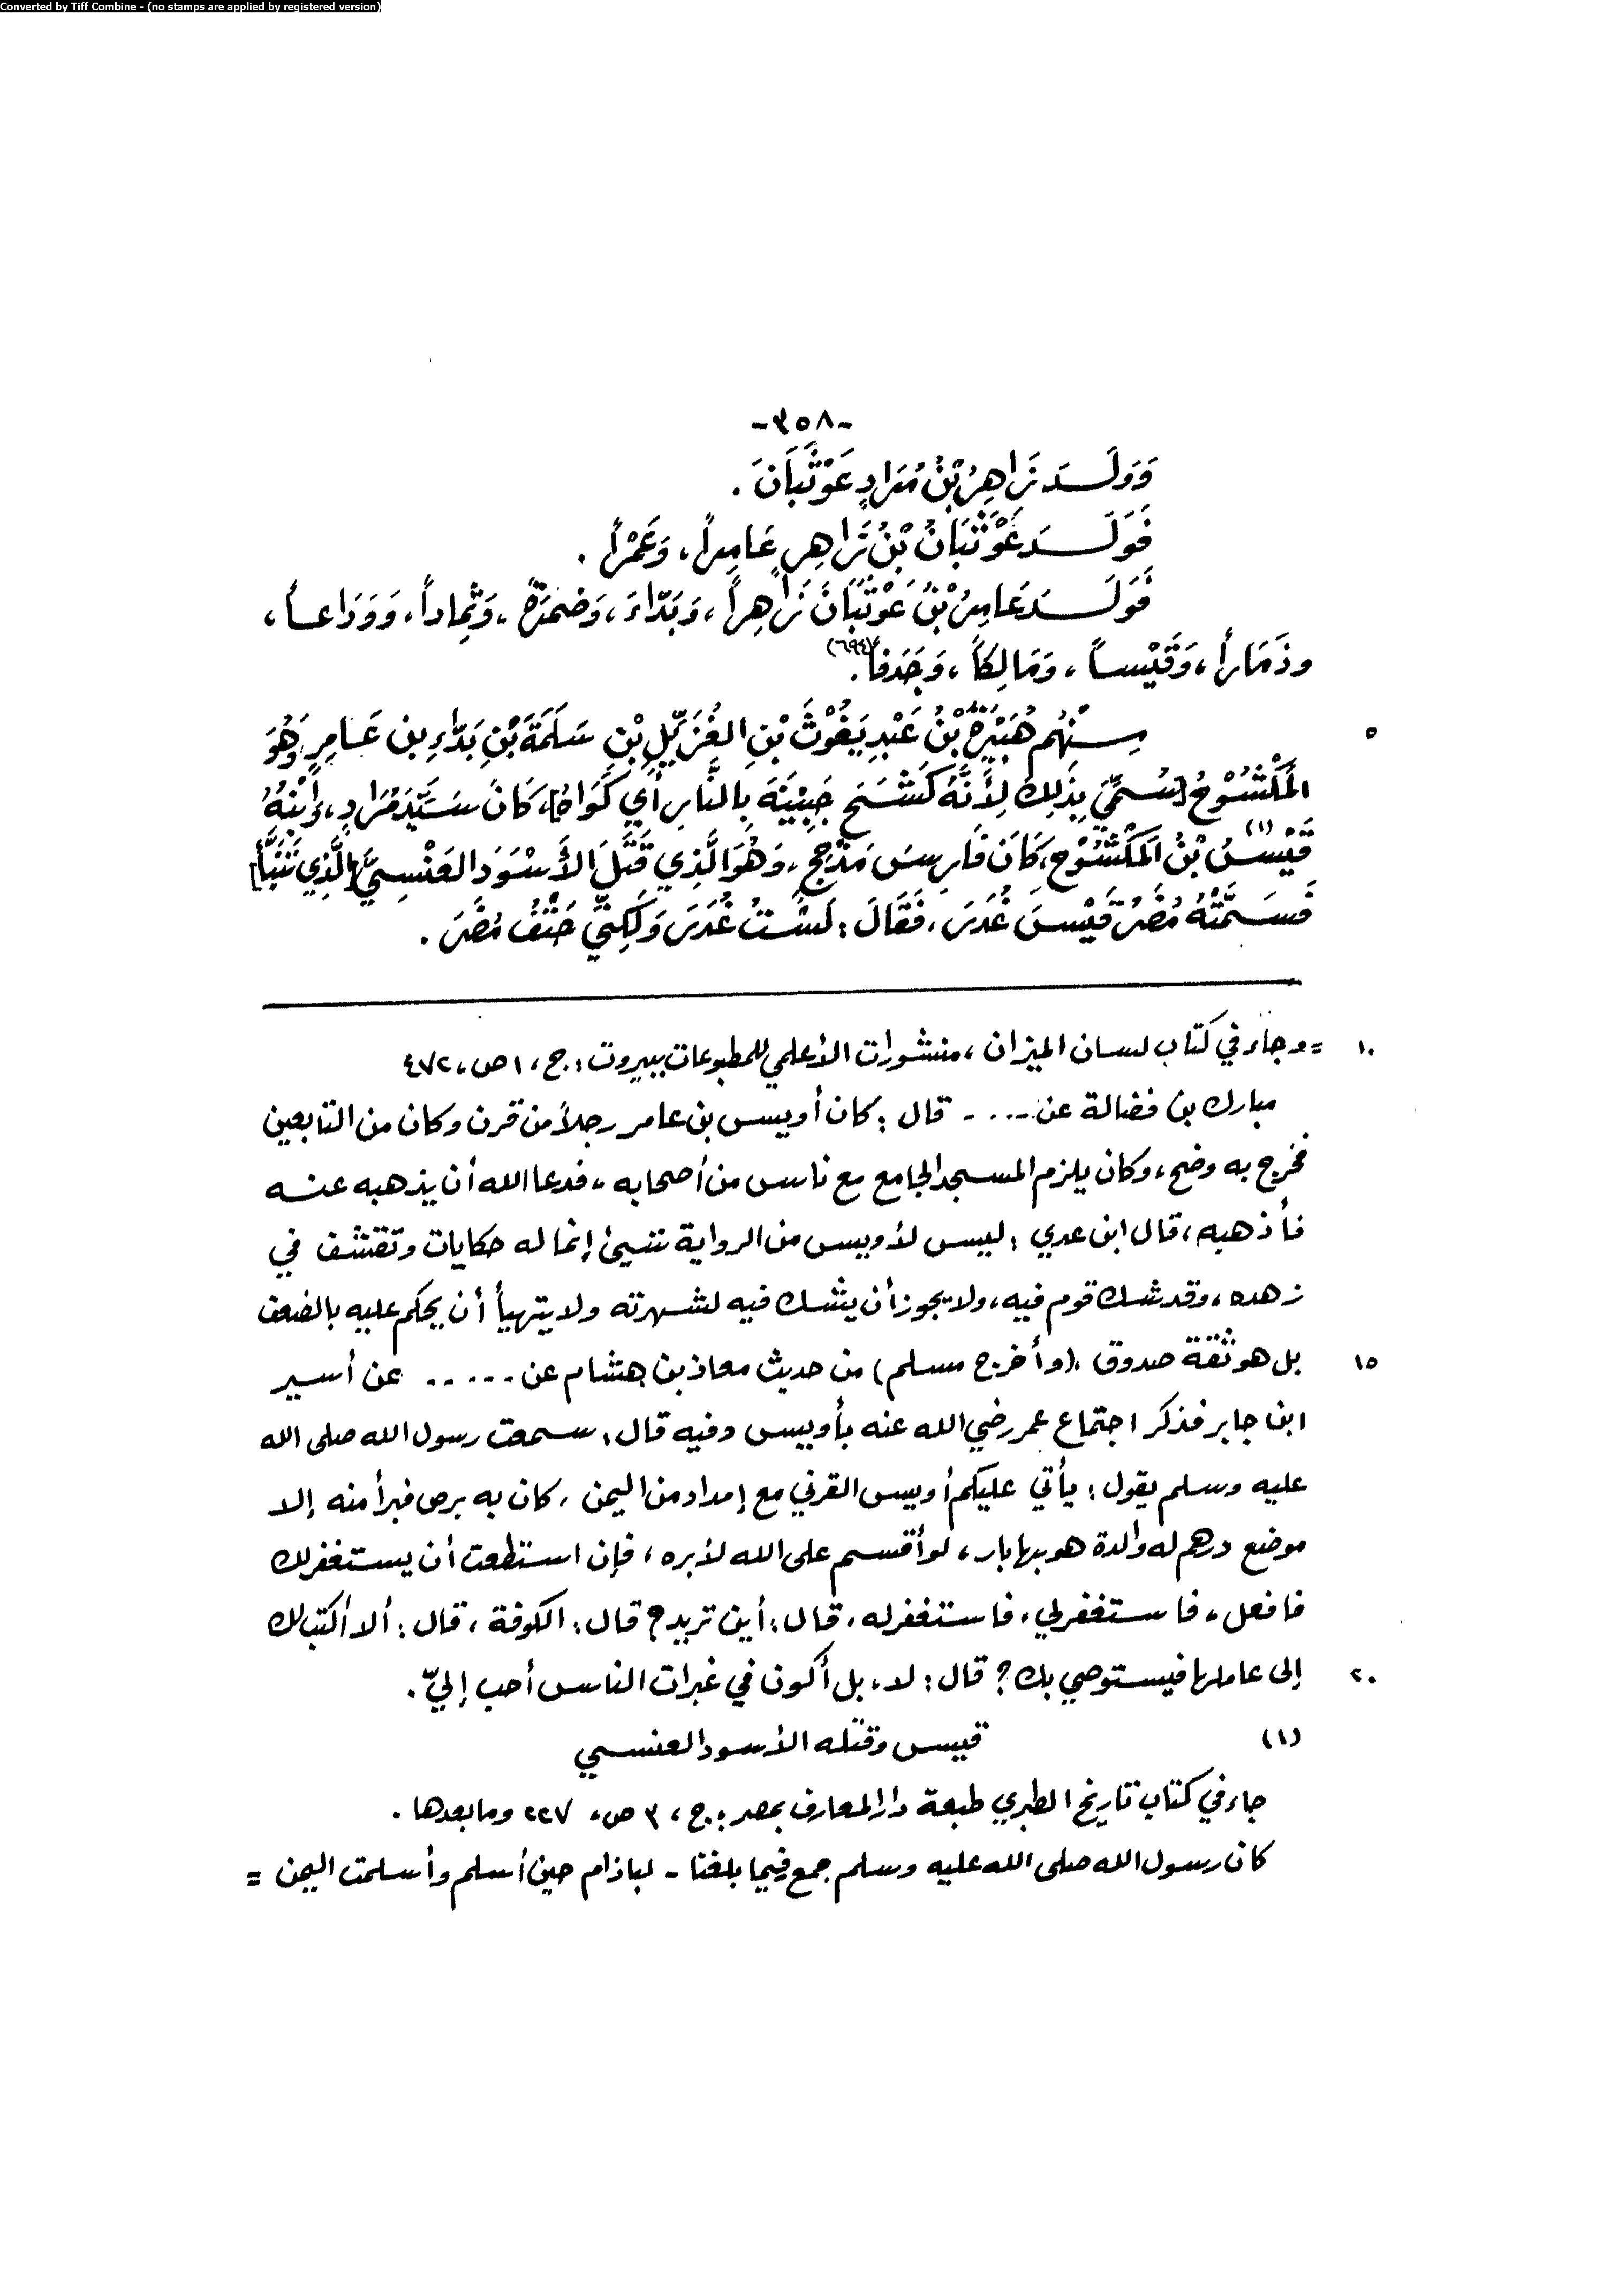 Converted by Tiff Combine - (no stamps are applied by registered version)
-٣٥٨-
وَوَلَدَ زَاهِرُ بْنُ مُرَادٍ عَوْثَبَانَ .
فَوَلَدَ عَوْثَبَانُ بْنُ زَاهِرٍ عَامِراً، وَعَمْراً .
فَوَلَدَ عَامِرُ بْنُ عَوْثَبَانَ زَاهِراً، وَبَدّاءَ، وَضَمْرَةَ، وَثِماداً، وَوَدَاعاً،
وذَمَاراً، وَقَيْساً، وَمَالِكاً، وَجَدَفاً(٦٩٤).
٥ مِنْهُم هُبَيْرَةُ بْنُ عَبْدِ يَغُوثَ بْنِ الغُزَيِّلِ بْنِ سَلَمَةَ بْنِ بَدّاءِ بن عَامِرٍ وَهُوَ
المَكْشُوْحُ [سُمِّيَ بِذَلِكَ لِأَنَّهُ كَشَحَ جَبِيْنَهَ بِالنَّارِ أي كَوَاهُ]، كَانَ سَيِّدَ مُرَادٍ، وَابْنُهُ
قَيْسُ(١) بْنُ المَكْشُوْحِ، كَانَ فَارِسَ مَذْحِجٍ، وَهُوَ الَّذِي قَتَلَ الأَسْوَدَ العَنْسِيَّ [الَّذِي تَنَبَّأَ]
فَسَمَّتْهُ مُضَرُ قَيْسَ غُدَرَ، فَقَالَ: لَسْتُ غُدَرَ وَلَكِنِّي حَتْفُ مُضَرَ .
١٠ = وجاء في كتاب لسان الميزان، منشورات الأعلمي للمطبوعات ببيروت: ج، ١ ص، ٤٧٢
مبارك بن فضالة عن .... قال: كان أويس بن عامر رجلاً من قرن وكان من التابعين
فخرج به وضح، وكان يلزم المسجد الجامع مع ناس من أصحابه، فدعا الله أن يذهبه عنه
فأذهبه، قال ابن عدي: ليس لأويس من الرواية شيئ إنما له حكايات وتقشف في
زهده، وقد شك قوم فيه، ولا يجوز أن يشك فيه لشهرته ولا يتهيأ أن يحكم عليه بالضعف
١٥ بل هو ثقة صدوق، (وأخرج مسلم) من حديث معاذ بن هشام عن ..... عن أسير
ابن جابر فذكر اجتماع عمر رضي الله عنه بأويس وفيه قال: سمعت رسول الله صلى الله
عليه وسلم يقول: يأتي عليكم أويس القرني مع إمداد من اليمن، كان به برص فبرأ منه إلا
موضع درهم له والدة هو بها بار، لو أقسم على الله لأبره، فإن استطعت أن يستغفر لك
فافعل، فاستغفر لي، فاستغفر له، قال: أين تريد؟ قال: الكوفة، قال: ألا أكتب لك
٢٠ إلى عاملها فيستوصي بك؟ قال: لا، بل أكون في غبرات الناس أحب إليّ .
(١) قيس وقتله الأسود العنسي
جاء في كتاب تاريخ الطبري طبعة دار المعارف بمصر: ج، ٣ ص، ٢٢٧ وما بعدها .
كان رسول الله صلى الله عليه وسلم جمع فيما بلغنا - لباذام حين أسلم وأسلمت اليمن =